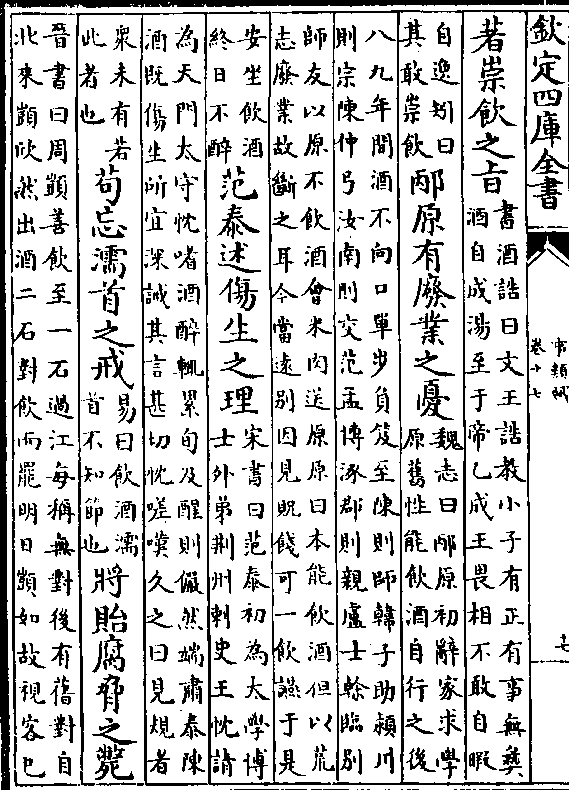 欽定四庫全書
事類賦
卷十七
十七
著崇飲之旨
書酒誥曰文王誥教小子有正有事無彝
酒自成湯至于帝乙成王畏相不敢自暇
自逸矧曰
其敢崇飲
邴原有廢業之憂
魏志曰邴原初辭家求學
原舊性能飲酒自行之後
八九年間酒不向口單步負笈至陳則師韓子助潁川
則宗陳仲弓汝南則交范孟博涿郡則親盧士餘臨別
師友以原不飲酒會米肉送原原曰本能飲酒但以荒
志廢業故斷之耳今當遠別因見貺餞可一飲讌于是
安坐飲酒
終日不醉
范泰述傷生之理
宋書曰范泰初為太學博
士外弟荆州刺史王忱請
為天門太守忱嗜酒醉輒累旬及醒則儼然端肅泰陳
酒既傷生所宜深誡其言甚切忱嗟嘆久之曰見規者
衆未有若
此者也
苟忘濡首之戒
易曰飲酒濡
首不知節也
將貽腐脅之斃
晉書曰周顗善飲至一石過江每稱無對後有舊對自
北來顗欣然出酒二石對飲而罷明日顗如故視客已